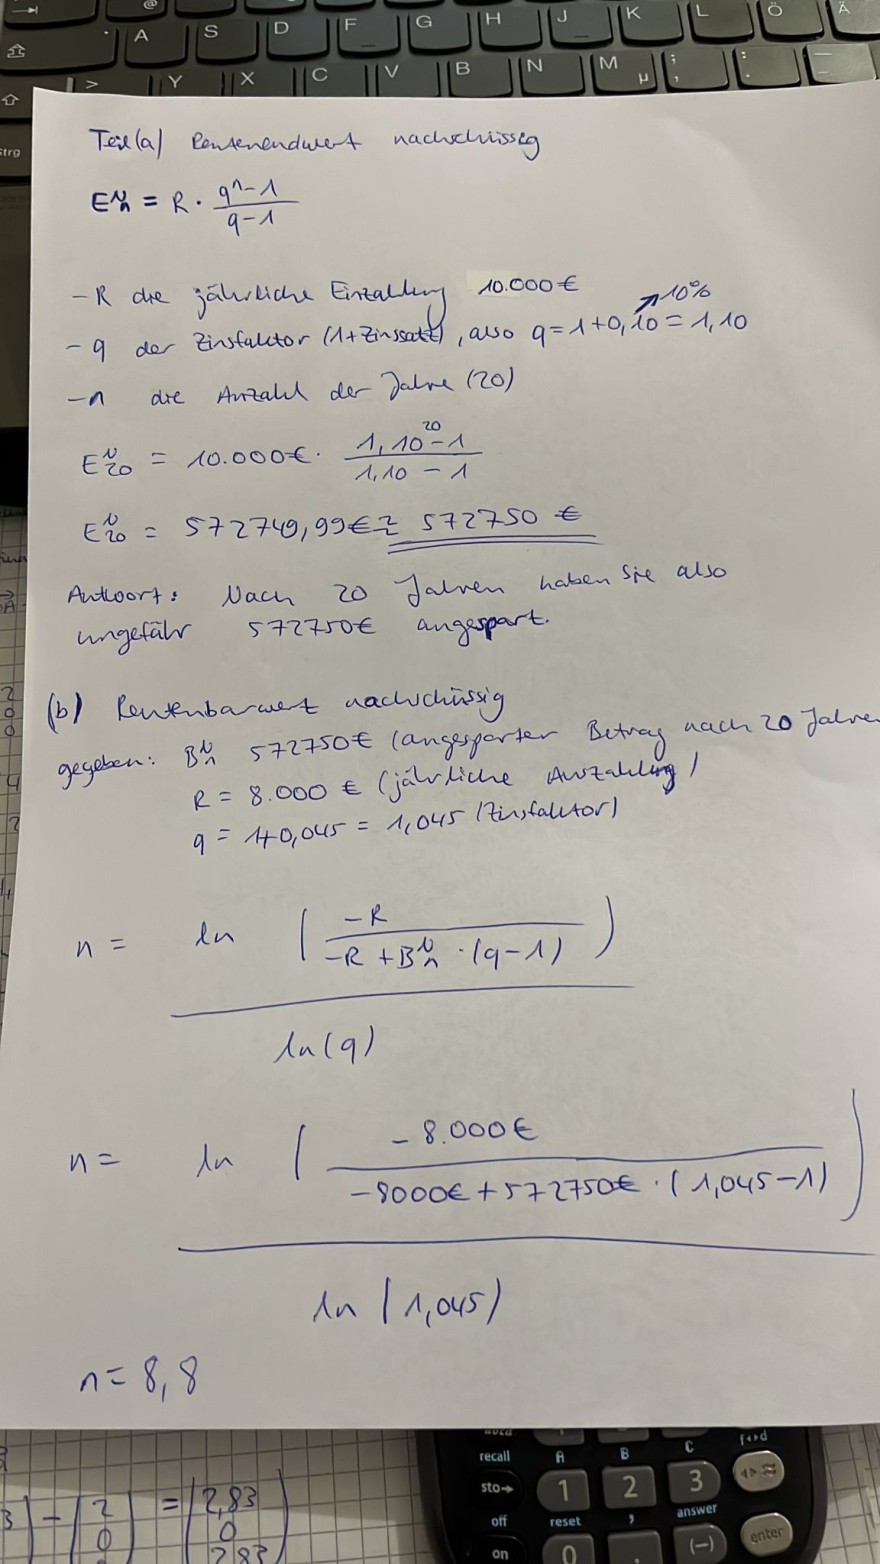 @
A S D F G H J K L Ö Ä
> Y X C V B N M µ ; , : .
strg
Teil (a) Rentenendwert nachschüssig
E^N_n = R · (q^n - 1) / (q - 1)
- R die jährliche Einzahlung 10.000 €
↗ 10%
- q der Zinsfaktor (1+Zinssatz), also q = 1+0,10 = 1,10
- n die Anzahl der Jahre (20)
E^N_20 = 10.000€ · (1,10^20 - 1) / (1,10 - 1)
E^N_20 = 572749,99€ ≈ 572750 €
Antwort: Nach 20 Jahren haben Sie also
ungefähr 572750€ angespart.
(b) Rentenbarwert nachschüssig
gegeben: B^N_n 572750€ (angesparter Betrag nach 20 Jahren
R = 8.000 € (jährliche Auszahlung)
q = 1+0,045 = 1,045 (Zinsfaktor)
n = ln ( -R / (-R + B^N_n · (q-1)) ) / ln(q)
n = ln ( -8.000€ / (-8000€ + 572750€ · (1,045-1)) ) / ln (1,045)
n = 8,8
3) - (2 0 = (2,83 0 2,83)
recall A B C
sto→ 1 2 3
off reset , answer
on 0 . (−) enter